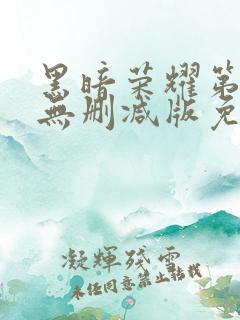 黑暗荣耀第
無删减版免
凝輝殘雲
未经同意禁止转载